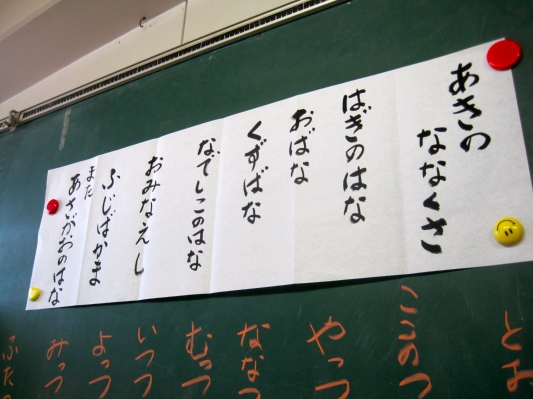 あきの
ななくさ
はぎのはな
おばな
くずばな
なでしこのはな
おみなえし
ふじばかま
また
あさがおのはな
とお
ここのつ
やっつ
ななつ
むっつ
いつつ
よっつ
みっつ
ふたつ